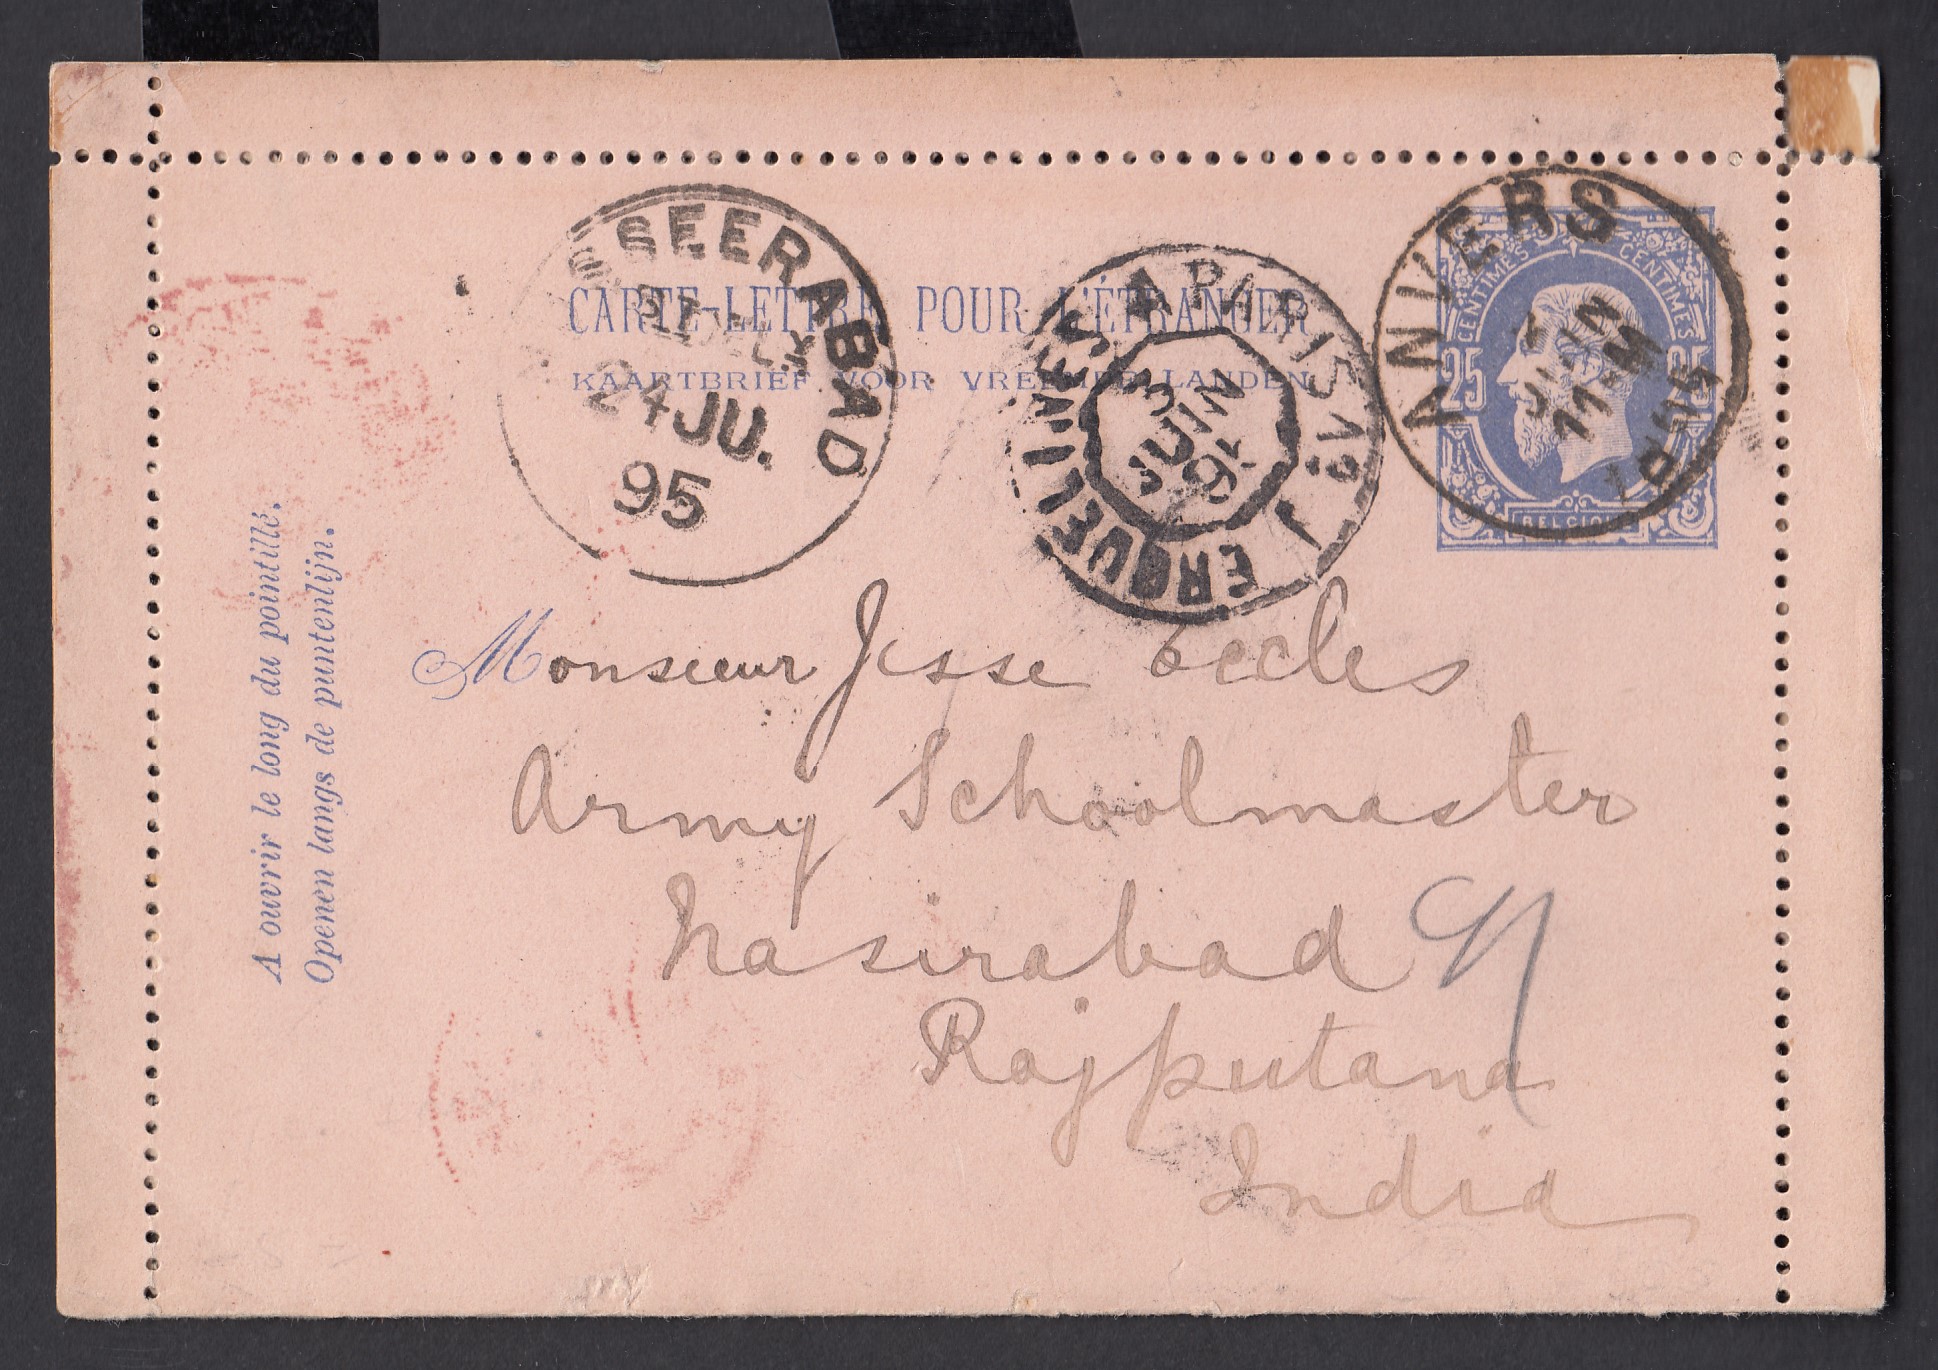 SSEERABAD
24 JU.
95
CARTE-LETTRE POUR L'ÉTRANGER
KAARTBRIEF VOOR VREEMDE LANDEN
ERQUELINES A PARIS 1º
3
JUIN
95
ANVERS
JUIN
11-M
1895
CENTIMES CENTIMES
25 25
BELGIQUE
A ouvrir le long du pointillé.
Openen langs de puntenlijn.
Monsieur Jesse Eccles
Army Schoolmaster
Nasirabad
Rajputana
India